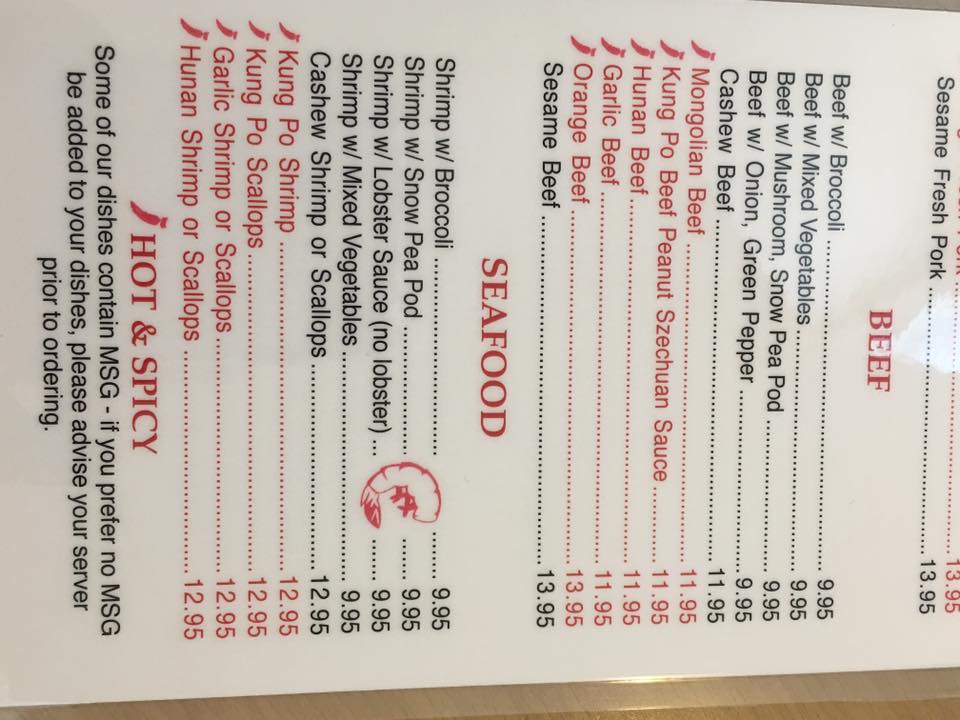 13.95
Sesame Fresh Pork 13.95
BEEF
Beef w/ Broccoli 9.95
Beef w/ Mixed Vegetables 9.95
Beef w/ Mushroom, Snow Pea Pod 9.95
Beef w/ Onion, Green Pepper 9.95
Cashew Beef 11.95
Mongolian Beef 11.95
Kung Po Beef Peanut Szechuan Sauce 11.95
Hunan Beef 11.95
Garlic Beef 11.95
Orange Beef 13.95
Sesame Beef 13.95
SEAFOOD
Shrimp w/ Broccoli 9.95
Shrimp w/ Snow Pea Pod 9.95
Shrimp w/ Lobster Sauce (no lobster) 9.95
Shrimp w/ Mixed Vegetables 9.95
Cashew Shrimp or Scallops 12.95
Kung Po Shrimp 12.95
Kung Po Scallops 12.95
Garlic Shrimp or Scallops 12.95
Hunan Shrimp or Scallops 12.95
HOT & SPICY
Some of our dishes contain MSG - if you prefer no MSG
be added to your dishes, please advise your server
prior to ordering.